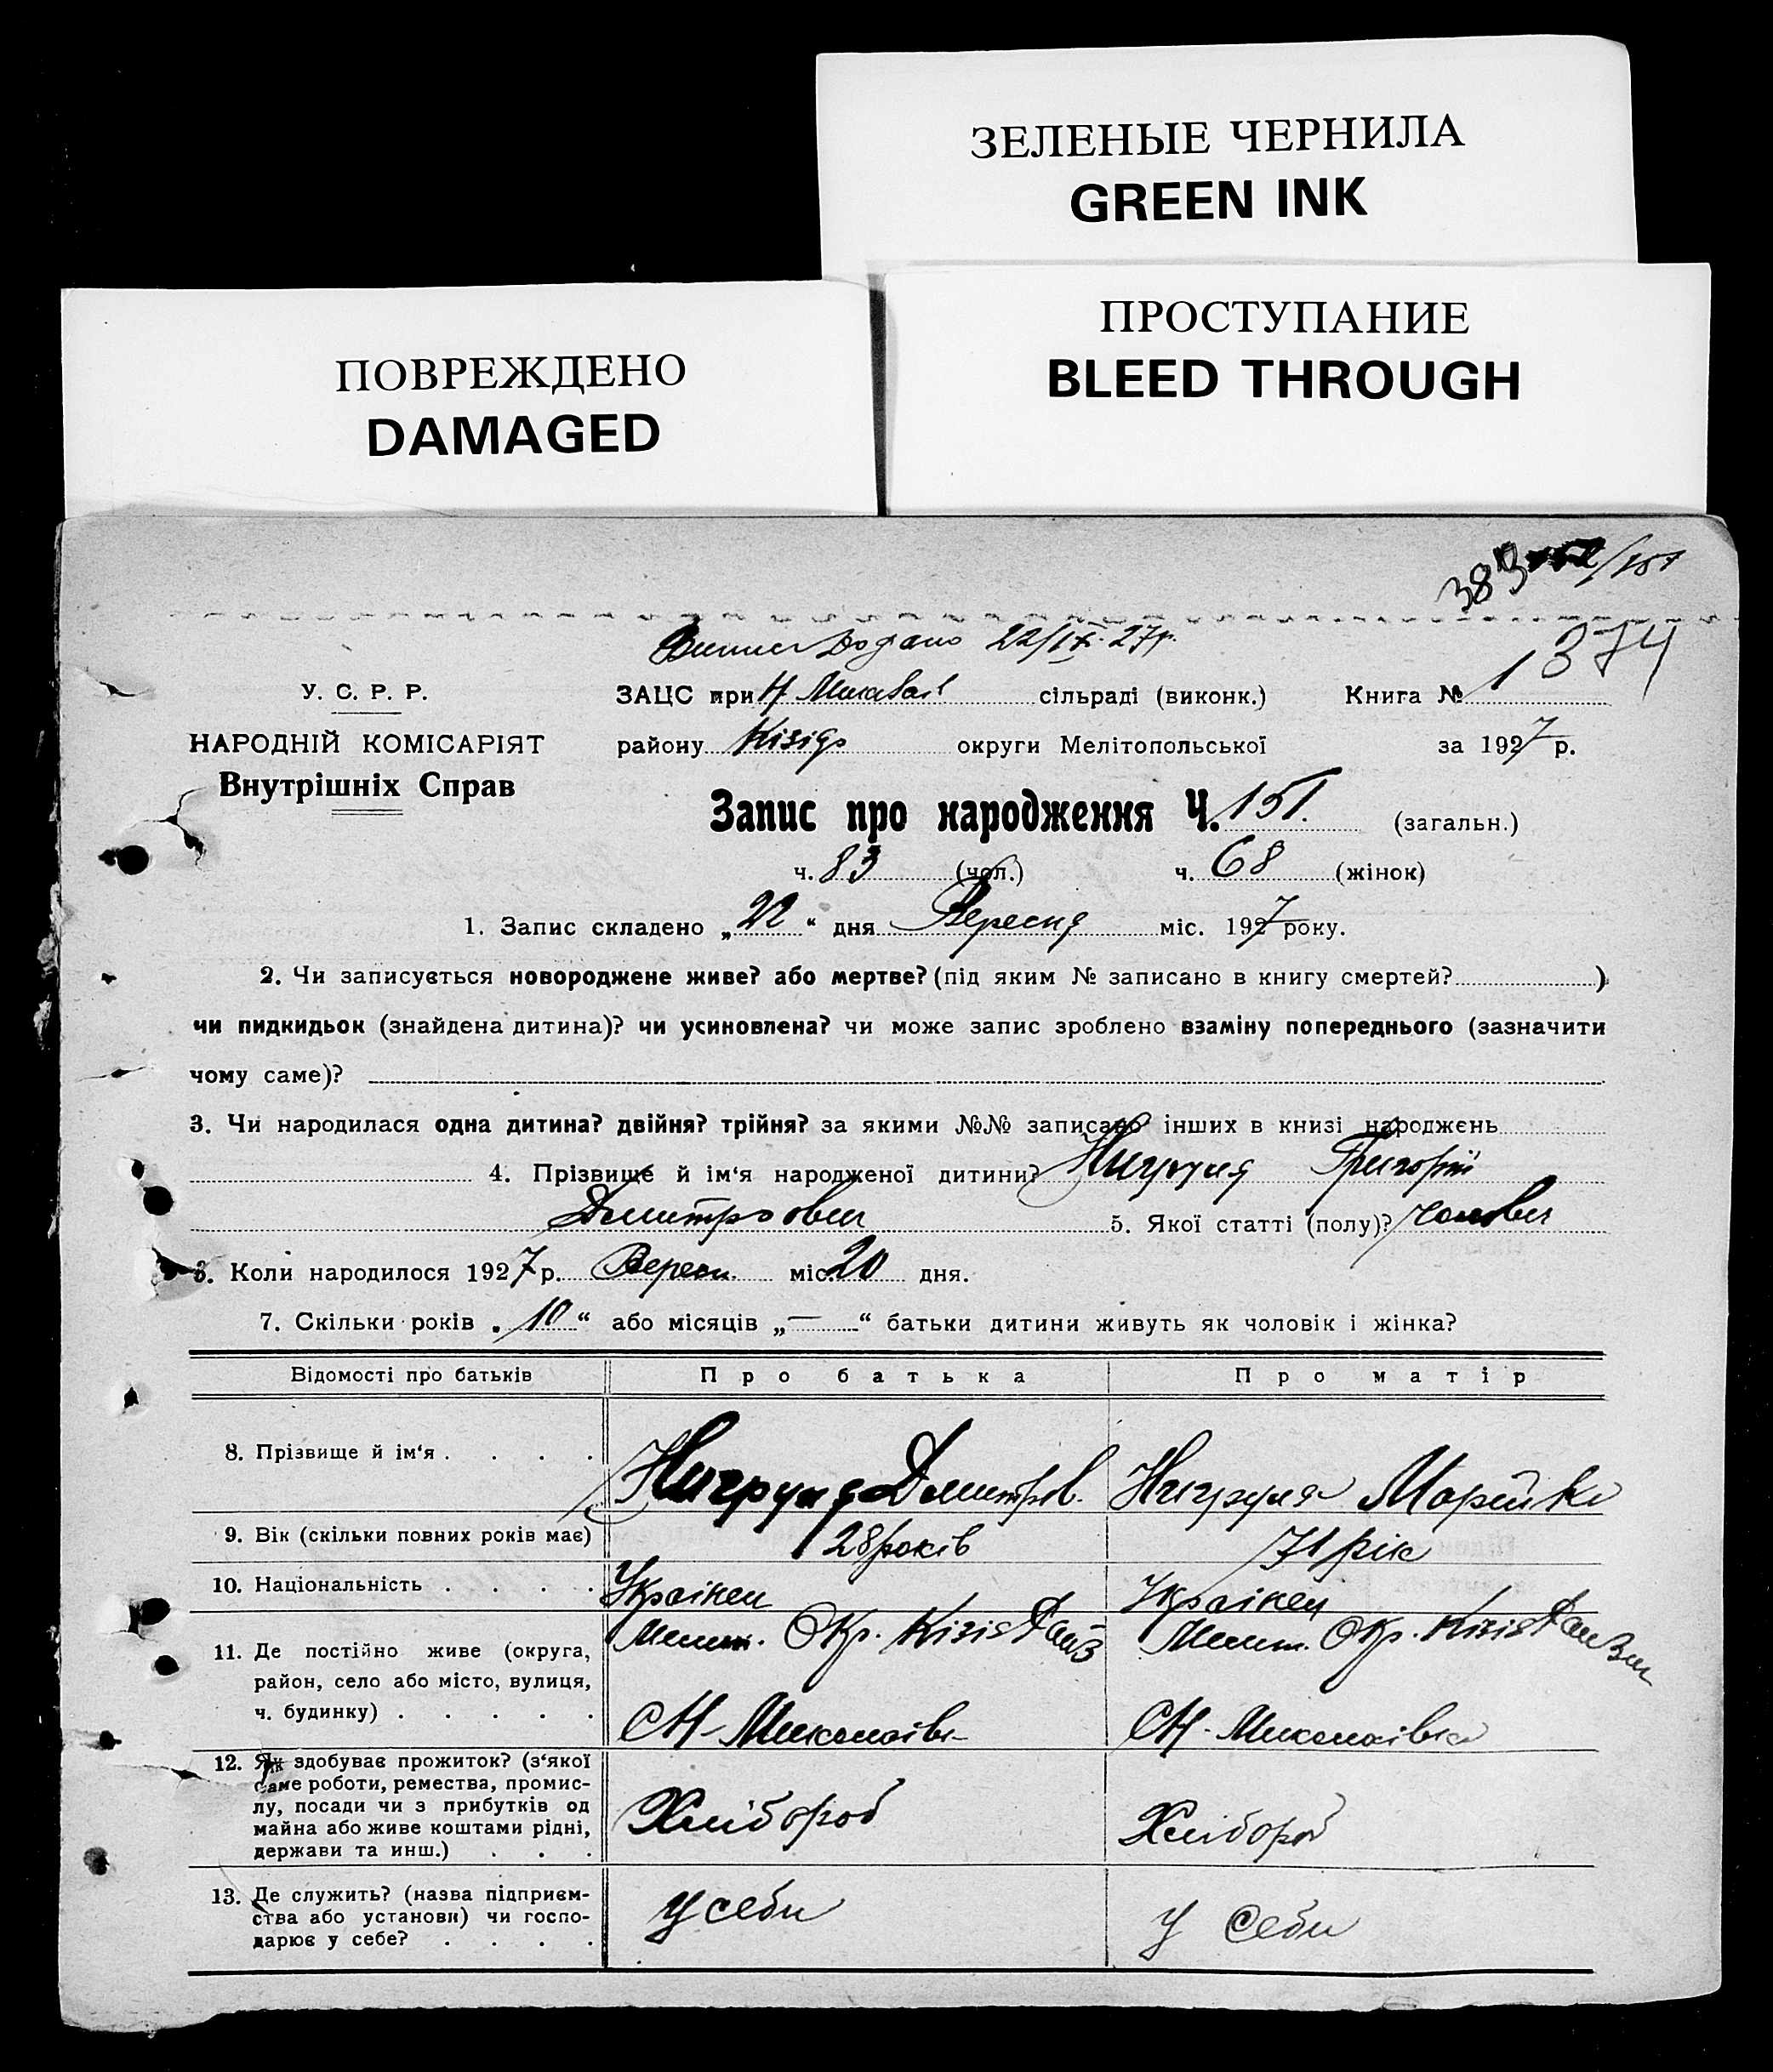 ЗЕЛЕНЫЕ ЧЕРНИЛА
GREEN INK
ПРОСТУПАНИЕ
BLEED THROUGH
ПОВРЕЖДЕНО
DAMAGED
383 /151
22/IX. 27р.
1374
У. С. Р. Р.
ЗАЦС при сільраді (виконк.) Книга №
НАРОДНІЙ КОМІСАРІЯТ
району округи Мелітопольської за 1927 р.
Внутрішніх Справ
Запис про народження Ч. 151. (загальн.)
ч. 83 (чол.) ч. 68 (жінок)
1. Запис складено „22“ дня Вересня міс. 1927 року.
2. Чи записується новороджене живе? або мертве? (під яким № записано в книгу смертей? )
чи пидкидьок (знайдена дитина)? чи усиновлена? чи може запис зроблено взаміну попереднього (зазначити
чому саме)?
3. Чи народилася одна дитина? двійня? трійня? за якими №№ записано інших в книзі народжень
4. Прізвище й ім‘я народженої дитини? Григорій
Дмитрович 5. Якої статті (полу)?
6. Коли народилося 1927 р. Вересн. міс. 20 дня.
7. Скільки років „10“ або місяців „—“ батьки дитини живуть як чоловік і жінка?
Відомості про батьків Про батька Про матір
8. Прізвище й ім‘я . . . .
9. Вік (скільки повних років має) 28 років рік
10. Національність . . . . Українец Українец
11. Де постійно живе (округа,
район, село або місто, вулиця,
ч. будинку) . . . . .
Мелит. Окр. Мелит. Окр.
12. Як здобуває прожиток? (з‘якої
саме роботи, ремества, промис-
лу, посади чи з прибутків од
майна або живе коштами рідні,
держави та инш.) . . .
Хлібороб Хлібороб
13. Де служить? (назва підприєм-
ства або установи) чи госпо-
дарює у себе? . . . .
У себи У себи